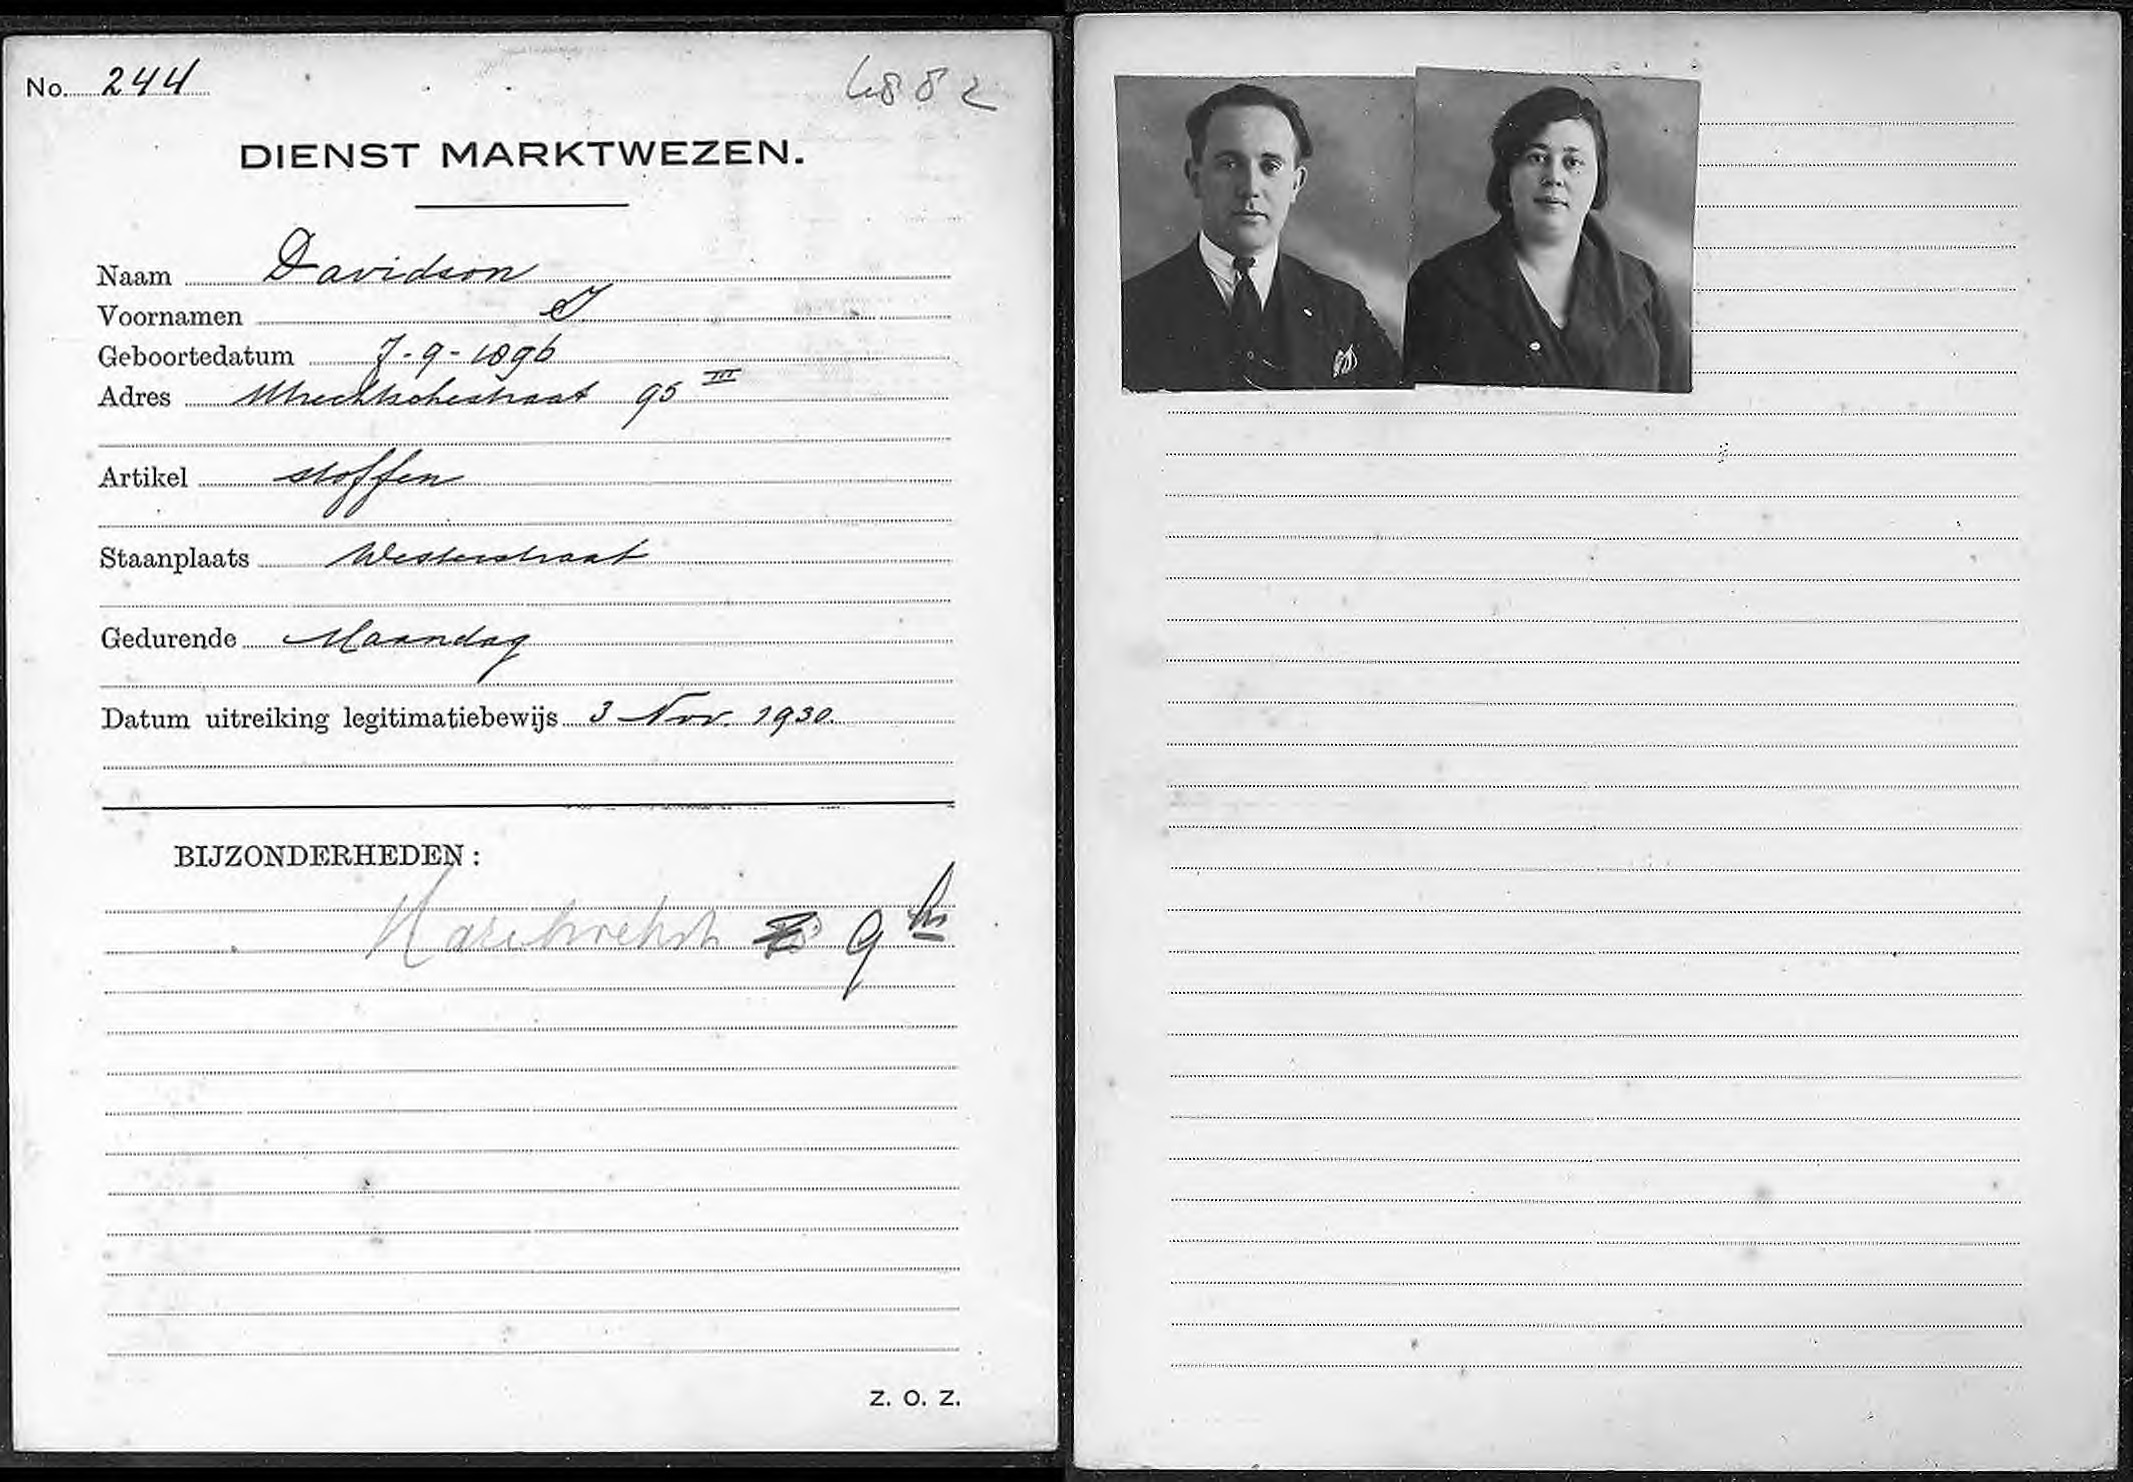 No. 244
6882
DIENST MARKTWEZEN.
Naam Davidson
Voornamen I
Geboortedatum 7-9-1896
Adres Utrechtschestraat 95 III
Artikel stoffen
Staanplaats Westerstraat
Gedurende Maandag
Datum uitreiking legitimatiebewijs 3 Nov. 1930.
BIJZONDERHEDEN:
9 hs
Z. O. Z.